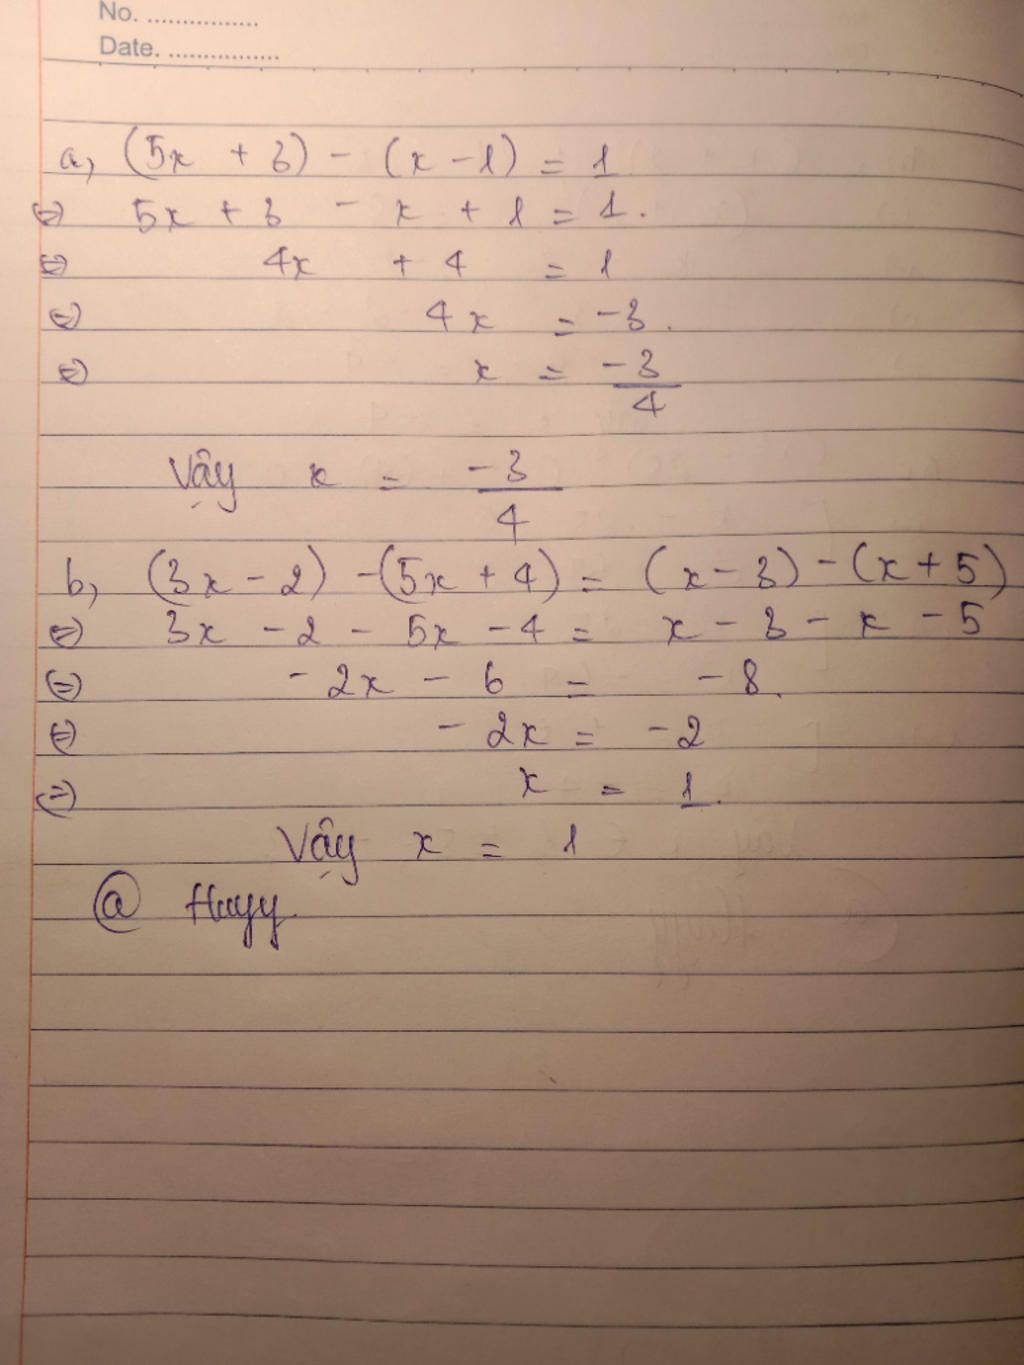 No. ................
Date. ................
a, (5x + 3) - (x - 1) = 1
⇔ 5x + 3 - x + 1 = 1.
⇔ 4x + 4 = 1
⇔ 4x = -3.
⇔ x = -3/4
Vậy x = -3/4
b, (3x - 2) - (5x + 4) = (x - 3) - (x + 5)
⇔ 3x - 2 - 5x - 4 = x - 3 - x - 5
⇔ -2x - 6 = -8.
⇔ -2x = -2
⇔ x = 1.
Vậy x = 1
@ Huyy